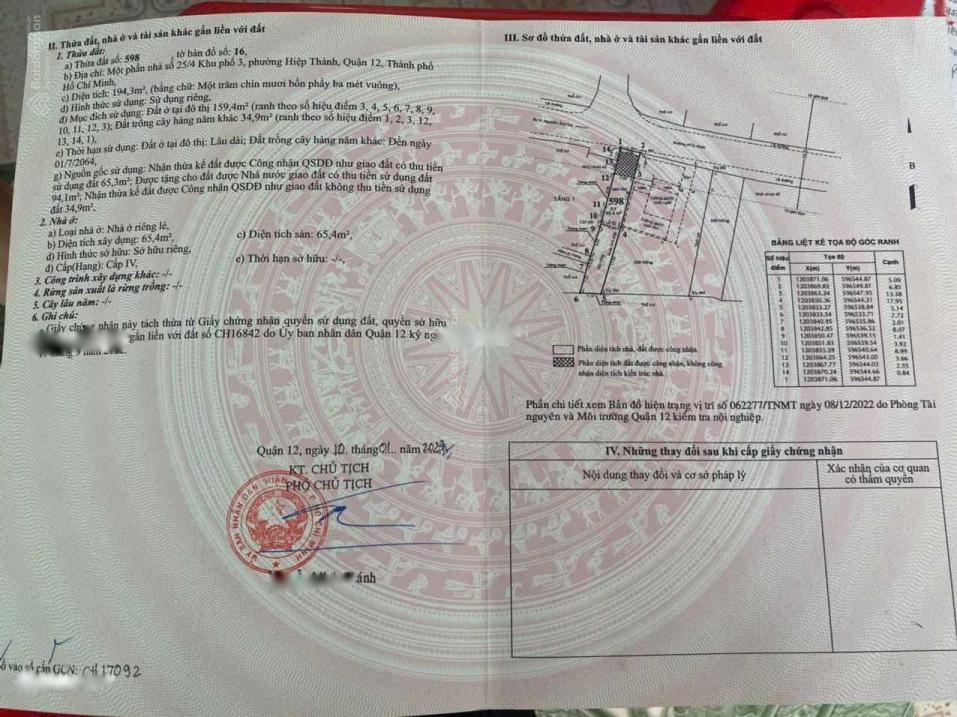 II. Thửa đất, nhà ở và tài sản khác gắn liền với đất
1. Thửa đất:
a) Thửa đất số: 598 , tờ bản đồ số: 16,
b) Địa chỉ: Một phần nhà số 25/4 Khu phố 3, phường Hiệp Thành, Quận 12, Thành phố
Hồ Chí Minh,
c) Diện tích: 194,3m², (bằng chữ: Một trăm chín mươi bốn phẩy ba mét vuông),
d) Hình thức sử dụng: Sử dụng riêng,
đ) Mục đích sử dụng: Đất ở tại đô thị 159,4m² (ranh theo số hiệu điểm 3, 4, 5, 6, 7, 8, 9,
10, 11, 12, 3); Đất trồng cây hàng năm khác 34,9m² (ranh theo số hiệu điểm 1, 2, 3, 12,
13, 14, 1),
e) Thời hạn sử dụng: Đất ở tại đô thị: Lâu dài; Đất trồng cây hàng năm khác: Đến ngày
01/7/2064,
g) Nguồn gốc sử dụng: Nhận thừa kế đất được Công nhận QSDĐ như giao đất có thu tiền
sử dụng đất 65,3m²; Được tặng cho đất được Nhà nước giao đất có thu tiền sử dụng đất
94,1m²; Nhận thừa kế đất được Công nhận QSDĐ như giao đất không thu tiền sử dụng
đất 34,9m².
2. Nhà ở:
a) Loại nhà ở: Nhà ở riêng lẻ,
b) Diện tích xây dựng: 65,4m², c) Diện tích sàn: 65,4m²,
d) Hình thức sở hữu: Sở hữu riêng,
đ) Cấp(Hạng): Cấp IV, e) Thời hạn sở hữu: -/-,
3. Công trình xây dựng khác: -/-
4. Rừng sản xuất là rừng trồng: -/-
5. Cây lâu năm: -/-
6. Ghi chú:
Giấy chứng nhận này tách thửa từ Giấy chứng nhận quyền sử dụng đất, quyền sở hữu
gắn liền với đất số CH16842 do Ủy ban nhân dân Quận 12 ký
Quận 12, ngày 10. tháng 01.. năm 2023
KT. CHỦ TỊCH
PHÓ CHỦ TỊCH
ánh
vào sổ cấp GCN: CH17092
III. Sơ đồ thửa đất, nhà ở và tài sản khác gắn liền với đất
TẦNG 1
598
BẢNG LIỆT KÊ TỌA ĐỘ GÓC RANH
Số hiệu điểm Tọa độ Cạnh
X(m) Y(m)
1 1203871.06 596544.87 5.09
2 1203869.83 596549.81 6.85
3 1203863.24 596547.95 13.38
4 1203850.36 596544.31 17.95
5 1203833.27 596538.84 5.14
6 1203833.54 596533.71 7.72
7 1203840.95 596535.86 2.01
8 1203842.85 596536.52 8.07
9 1203850.47 596539.15 1.41
10 1203851.83 596539.54 3.92
11 1203855.59 596540.64 8.99
12 1203864.25 596543.05 3.66
13 1203867.77 596544.03 2.55
14 1203870.24 596544.66 0.84
1 1203871.06 596544.87
Phần diện tích nhà, đất được công nhận.
Phần diện tích đất được công nhận, không công
nhận diện tích kiến trúc nhà.
Phần chi tiết xem Bản đồ hiện trạng vị trí số 062277/TNMT ngày 08/12/2022 do Phòng Tài
nguyên và Môi trường Quận 12 kiểm tra nội nghiệp.
IV. Những thay đổi sau khi cấp giấy chứng nhận
Nội dung thay đổi và cơ sở pháp lý
Xác nhận của cơ quan
có thẩm quyền